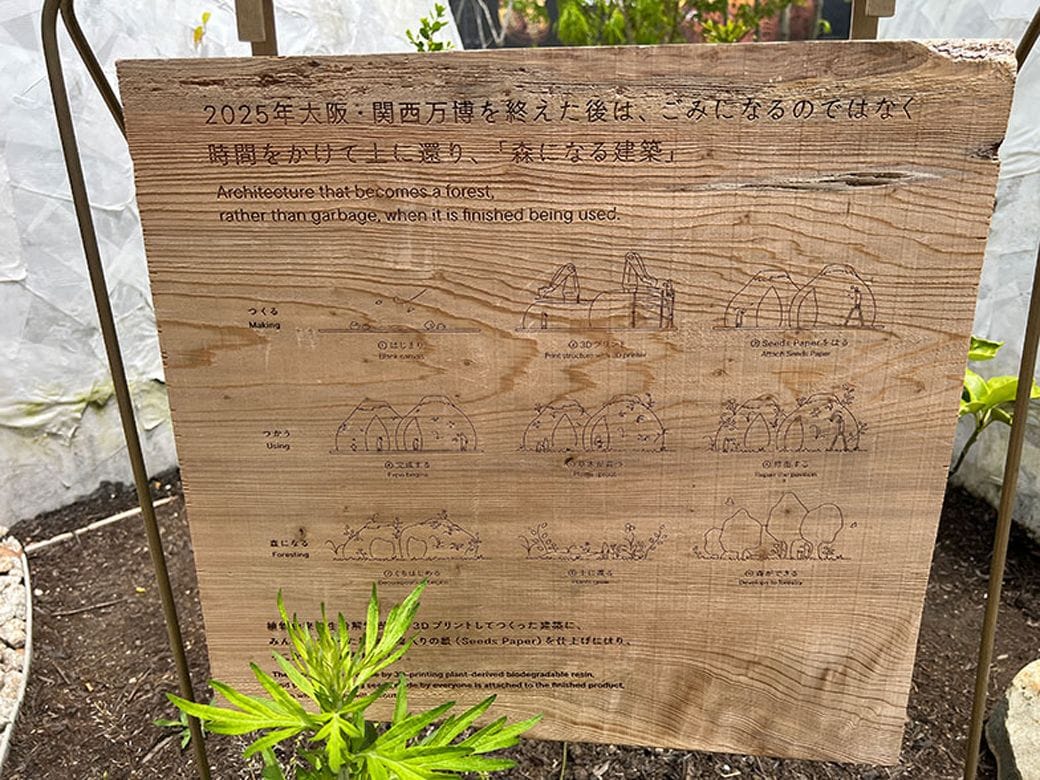 2025年大阪・関西万博を終えた後は、ごみになるのではなく
時間をかけて土に還り、「森になる建築」
Architecture that becomes a forest,
rather than garbage, when it is finished being used.
つくる
Making
①はじまり
Blank canvas
②3Dプリント
Print structure with 3D printer
③Seeds Paperをはる
Attach Seeds Paper
つかう
Using
④完成する
Expo begins
⑤草木が育つ
Plants sprout
⑥修繕する
Repair the pavilion
森になる
Foresting
⑦くちはじめる
⑧土に還る
⑨森ができる
Develops to forestry
3Dプリントしてつくった建築に、
みん りの紙（Seeds Paper）を仕上げにはり、
by 3D-printing plant-derived biodegradable resin,
made by everyone is attached to the finished product,